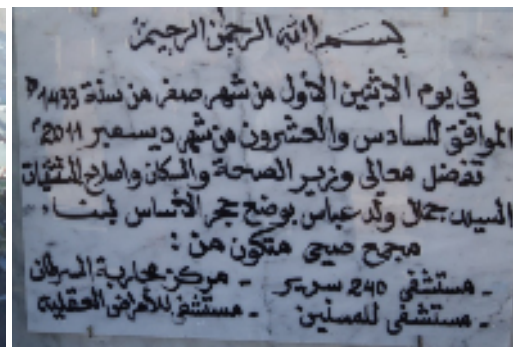 بسم الله الرحمن الرحيم
في يوم الاثنين الأول من شهر صفر من سنة 1433 هـ
الموافق للسادس والعشرون من شهر ديسمبر 2011 م
تفضل معالي وزير الصحة والسكان واصلاح المستشفيات
السيد جمال ولد عباس بوضح حجر الأساس لبناء
مجمع صحي متكون من :
- مستشفى 240 سرير - مركز محاربة السرطان
- مستشفى للمسنين - مستشفى للأمراض العقلية